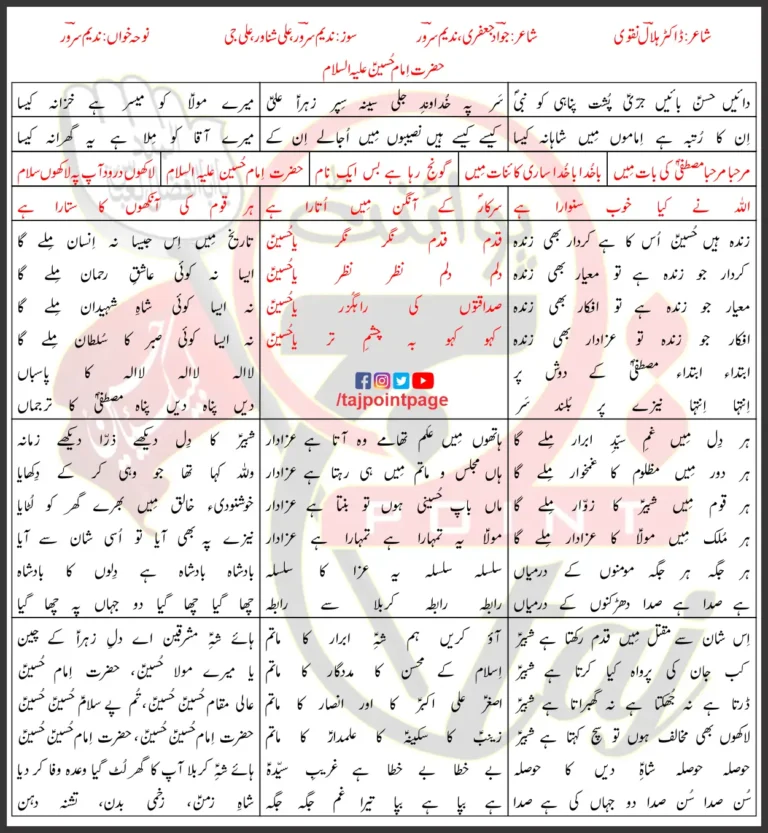 شاعر: ڈاکٹر ہلال نقوی شاعر: جواد جعفری، ندیم سرور سوز: ندیم سرور، علی شناور، علی جی نوحہ خواں: ندیم سرور
حضرت اِمام حُسینؑ علیہ السلام
دائیں حسنؑ بائیں جریؑ پُشت پناہی کو نبیؐ
سَر پہ خُداوندِ جلی سینہ سِپر زہراؑ علیؑ
میرے مولاؑ کو میسر ہے خزانہ کیسا
اِن کا رُتبہ ہے اِماموں میں شاہانہ کیسا
کیسے کیسے ہیں نصیبوں میں اُجالے اِن کے
میرے آقا کو مِلا ہے یہ گھرانہ کیسا
مرحبا مرحبا مصطفیؐ کی بات میں
باخُدا باخُدا ساری کائنات میں
گونج رہا ہے بس ایک نام
حضرت اِمام حُسین علیہ السلام
لاکھوں درود آپ پہ لاکھوں سلام
اللہ نے کیا خوب سنوارا ہے
سرکارؐ کے آنگن میں اُتارا ہے
ہر قوم کی آنکھوں کا ستارا ہے
زندہ ہیں حُسینؑ اُس کا ہے کردار بھی زندہ
کردار جو زندہ ہے تو معیار بھی زندہ
معیار جو زندہ ہے تو افکار بھی زندہ
افکار جو زندہ تو عزادار بھی زندہ
ابتداء ابتداء مصطفیؐ کے دوش پر
اِنتہا اِنتہا نیزے پر بُلند سَر
قدم قدم نگر نگر یاحُسینؑ
دلم دلم نظر نظر یاحُسینؑ
صداقتوں کی راہگُزر یاحُسینؑ
کہو کہو بہ چشمِ تر یاحُسینؑ
/tajpointpage
تاریخ مِیں اِس جیسا نہ اِنسان مِلے گا
ایسا نہ کوئی عاشقِ رحمان مِلے گا
نہ ایسا کوئی شاہِ شہیدان مِلے گا
نہ ایسا کوئی صبر کا سُلطان مِلے گا
لاالہ لاالہ لاالہ کا پاسباں
دیں پناہ دیں پناہ مصطفیؐ کا ترجماں
ہر دِل مِیں غمِ سیّدِ ابرار مِلے گا
ہر دور مِیں مظلوم کا غمخوار مِلے گا
ہر قوم مِیں شبیرؑ کا زوّار مِلے گا
ہر مُلک مِیں مولاؑ کا عزادار مِلے گا
ہر جگہ ہر جگہ مومنوں کے درمیاں
ہے صدا ہے صدا دھڑکنوں کے درمیاں
ہاتھوں مِیں عَلم تھامے وہ آتا ہے عزادار
ہاں مجلس و ماتم مِیں ہی رہتا ہے عزادار
ماں باپ حُسینی ہوں تو بنتا ہے عزادار
مولاؑ یہ تمہارا ہے تمہارا ہے عزادار
سلسلہ سلسلہ یہ عزا کا سلسلہ
رابطہ رابطہ کربلا سے رابطہ
شبیرؑ کا دِل دیکھے ذرّا دیکھے زمانہ
وللہ کہا تھا جو وہی کر کے دِکھایا
خوشنودیء خالق مِیں بھرے گھر کو لُٹایا
نیزے پہ بھی آیا تو اُسی شان سے آیا
بادشاہ بادشاہ ہے دِلوں کا بادشاہ
چھا گیا چھا گیا دو جہاں پہ چھا گیا
اِس شان سے مقتل مِیں قدم رکھتا ہے شبیرؑ
کب جان کی پرواہ کیا کرتا ہے شبیرؑ
ڈرتا ہے نہ جُھکتا ہے نہ گھبراتا ہے شبیرؑ
لاکھوں بھی مخالف ہوں تو سچ کہتا ہے شبیرؑ
حوصلہ حوصلہ شاہِؑ دیں کا حوصلہ
سُن صدا سُن صدا دو جہاں کی ہے صدا
آؤ کریں ہم شہِؑ ابرار کا ماتم
اِسلام کے محسن کا مددگار کا ماتم
اصغرؑ علی اکبرؑ کا اور انصار کا ماتم
زینبؑ کا سکینہؑ کا علمدارؑ کا ماتم
بے خطا بے خطا ہے غریبِ سیّدہؑ
ہے بپا ہے بپا تیرا غم جگہ جگہ
ہائے شہِؑ مشرقین اے دلِ زہراؑ کے چین
یا میرے مولا حُسینؑ، حضرت اِمام حُسینؑ
عالی مقام حُسینؑ حُسینؑ، تُم پے سلام حُسینؑ حُسینؑ
حضرت اِمام حُسینؑ حُسینؑ، حضرت اِمام حُسینؑ حُسینؑ
ہائے شہِؑ کربلا آپ کا گھر لُٹ گیا وعدہ وفا کر دیا
شاہِ زمنؑ، زخمی بدن، تشنہ دہن